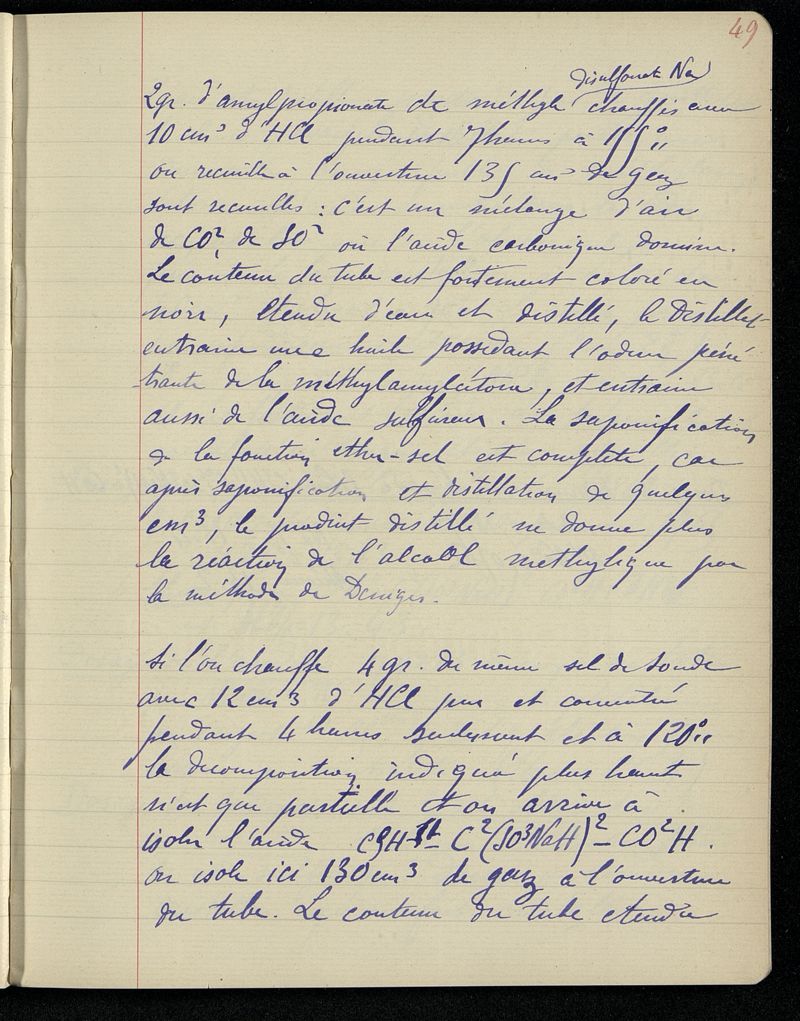 49
disulfonate Na
2gr. d'amylpropionate de méthyle chauffés avec
10 cm³ d'HCl pendant 7 heures à 155°
on recueille à l'ouverture 135 cm³ de gaz
sont recueilles : c'est un mélange d'air
de CO², de SO² où l'acide carbonique domine.
Le contenu du tube est fortement coloré en
noir, étendu d'eau et distillé, le distillat
entraine une huile possedant l'odeur péné
trante de la méthylamylcétone, et entraine
aussi de l'acide sulfureux. La saponification
de la fonction ether-sel est complète, car
après saponification et distillation de quelques
cm³, le produit distillé ne donne plus
la réaction de l'alcool methylique par
la méthode de Deniges.
Si l'on chauffe 4 gr. du même sel de soude
avec 12 cm3 d'HCl pur et concentré
pendant 4 heures seulement et à 120°
la decomposition indiqué plus haut
n'est que partielle et on arrive à
isoler l'acide C5H11 - C²(SO³NaH)² - CO²H.
on isole ici 130 cm3 de gaz à l'ouverture
du tube. Le contenu du tube etendu